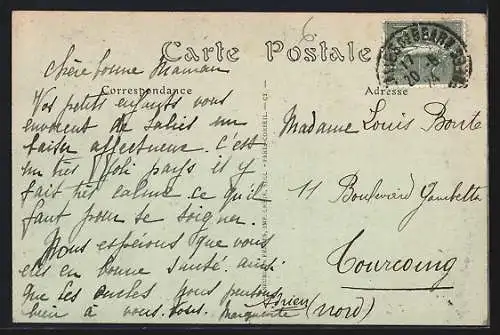 Carte Postale
Correspondance
Adresse
Chère bonne Maman
Vos petits enfants vous
envoient de Salies un
baiser affectueux. C'est
un très joli pays il y
fait très calme ce qu'il
faut pour se soigner.
Nous espérons que vous
êtes en bonne santé ainsi
que les oncles nous pensons
bien à vous tous.
Marguerite
Adrien
Madame Louis Bonte
11 Boulevard Gambetta
Tourcoing
(Nord)